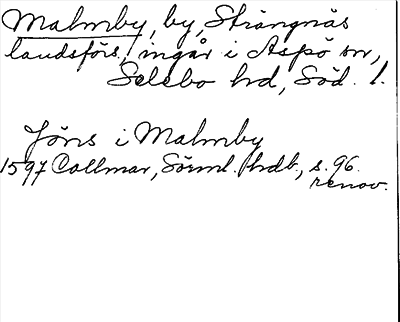 Malmby, by, Strängnäs
landsförs., ingår i Aspö sn,
Selebo hrd, Söd. l.
Jöns i Malmby
1597 Collmar, Sörml. hrdb., s. 96.
renov.